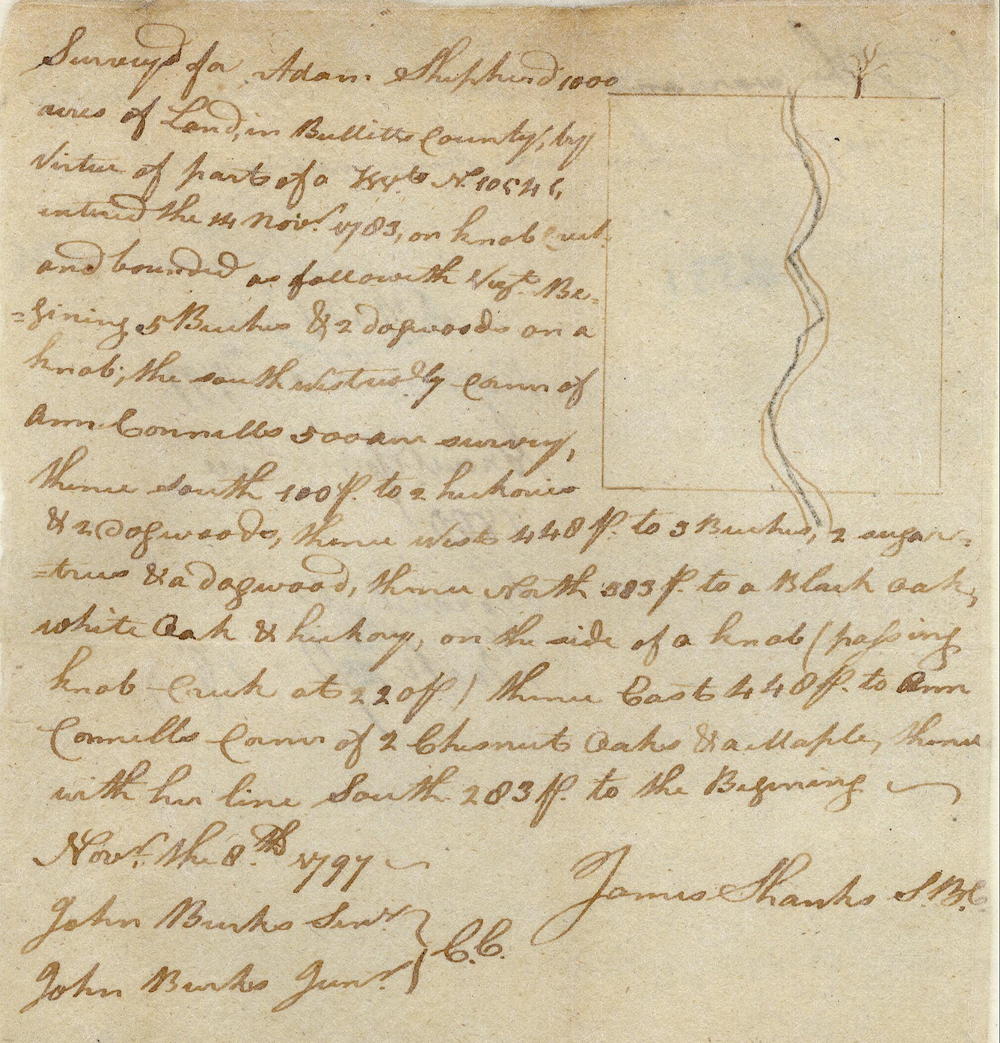 Survey'd for Adam Shepherd 1000
acres of Land, in Bullitts County, by
virtue of part of a Wrt. N.
entered the 14 Novr. 1783, on knob Creek
and bounded as followeth Viz. Be=
=gining 5 Buches & 2 dogwoods on a
knob, the south westwardly corner of
Ann Connells 500 acre survey,
thence south 100 p. to 2 hickories
& 2 dogwoods, thence West 448 p. to 3 Buches, 2 sugar=
=trees & a dogwood, thence North 383 p. to a Black oak,
white Oak & hickory, on the side of a knob (passing
knob Creek at 220 p) thence East 448 p. to Ann
Connells Corner of 2 Chesnut Oaks & a Maple, thence
with her line South 283 p. to the Begining
Novr. the 8th 1797
James Shanks S.B.C.
John Burks Senr.
C.C.
John Burks Junr.